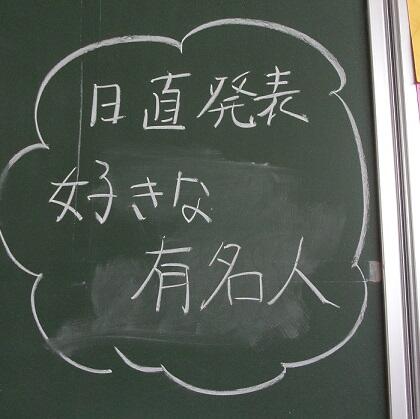 日直発表
好きな
有名人